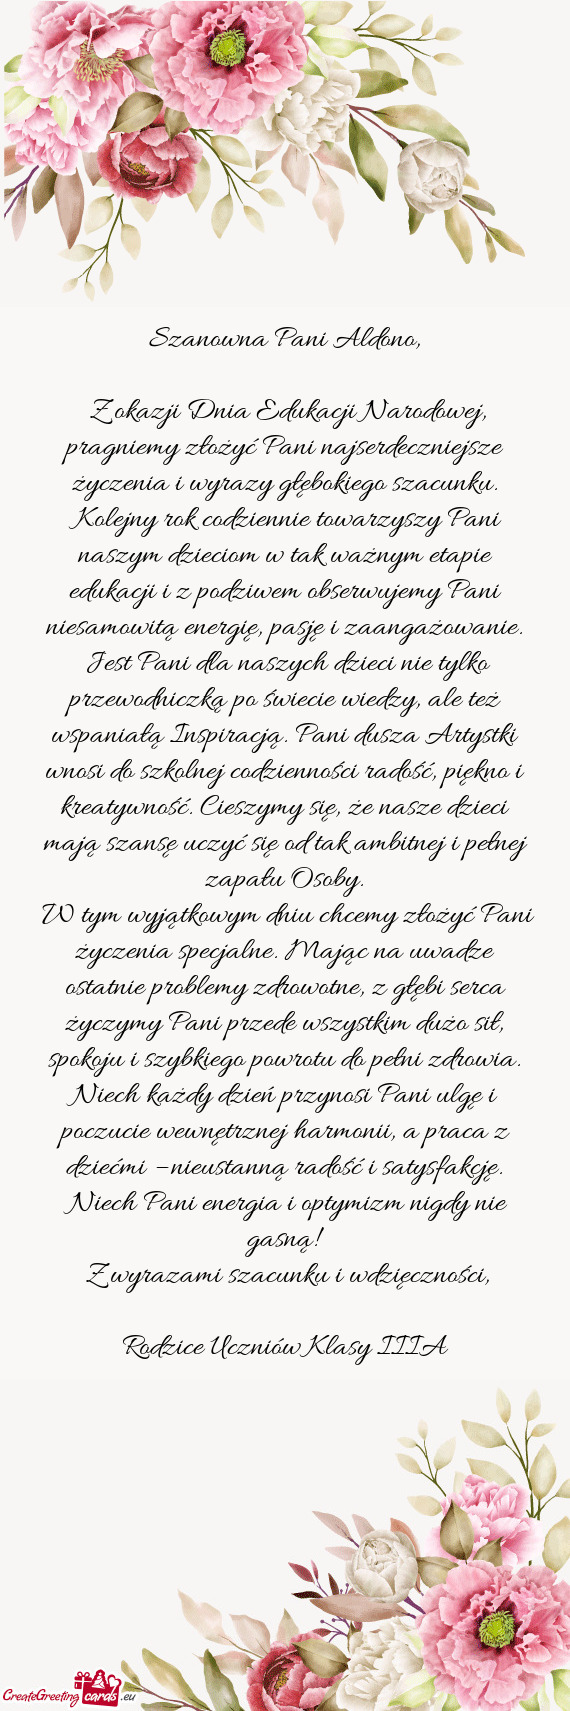 Szanowna Pani Aldono,
Z okazji Dnia Edukacji Narodowej,
pragniemy złożyć Pani najserdeczniejsze
życzenia i wyrazy głębokiego szacunku.
Kolejny rok codziennie towarzyszy Pani
naszym dzieciom w tak ważnym etapie
edukacji i z podziwem obserwujemy Pani
niesamowitą energię, pasję i zaangażowanie.
Jest Pani dla naszych dzieci nie tylko
przewodniczką po świecie wiedzy, ale też
wspaniałą Inspiracją. Pani dusza Artystki
wnosi do szkolnej codzienności radość, piękno i
kreatywność. Cieszymy się, że nasze dzieci
mają szansę uczyć się od tak ambitnej i pełnej
zapału Osoby.
W tym wyjątkowym dniu chcemy złożyć Pani
życzenia specjalne. Mając na uwadze
ostatnie problemy zdrowotne, z głębi serca
życzymy Pani przede wszystkim dużo sił,
spokoju i szybkiego powrotu do pełni zdrowia.
Niech każdy dzień przynosi Pani ulgę i
poczucie wewnętrznej harmonii, a praca z
dziećmi –nieustanną radość i satysfakcję.
Niech Pani energia i optymizm nigdy nie
gasną!
Z wyrazami szacunku i wdzięczności,
Rodzice Uczniów Klasy IIIA
CreateGreeting cards .eu